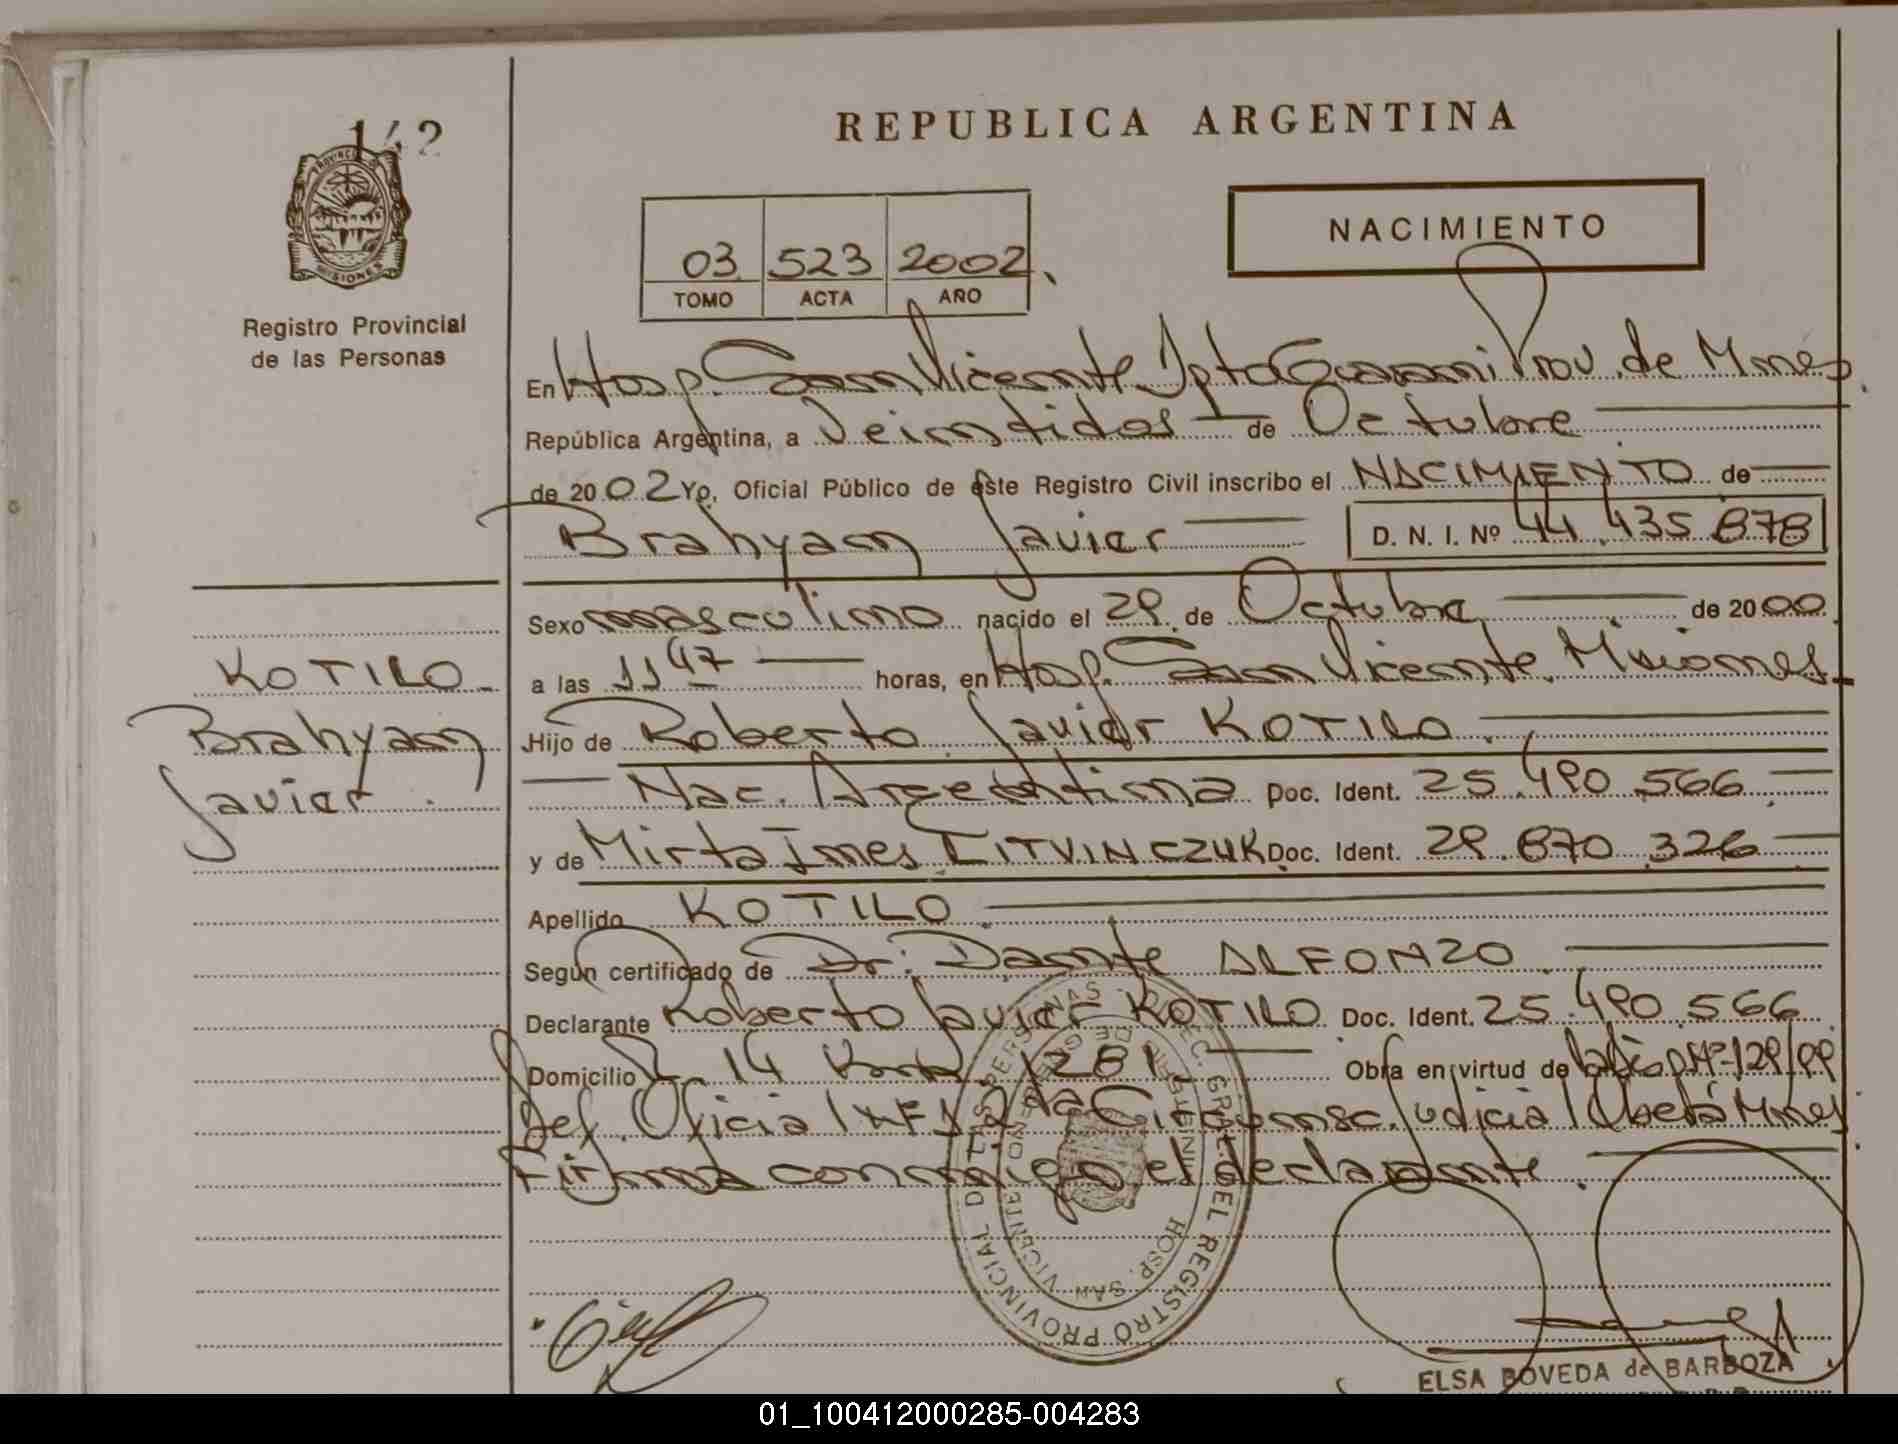 142
REPUBLICA ARGENTINA
PROVINCIA DE MISIONES
Registro Provincial
de las Personas
03 523 2002
TOMO ACTA AÑO
NACIMIENTO
En Hosp. San Vicente, Dpto Guarani Prov. de Mnes.
República Argentina, a Veintidos de Octubre
de 2002 Yo, Oficial Público de este Registro Civil inscribo el NACIMIENTO de
Brahyan Javier D. N. I. Nº 44.435.878
Sexo masculino nacido el 29 de Octubre de 2000
a las 11 47 horas, en Hosp. San Vicente. Misiones
KOTILO
Brahyan
Javier
Hijo de Roberto Javier KOTILO
Nac. Argentina Doc. Ident. 25.490.566
y de Mirta Ines LITVINCZUK Doc. Ident. 29.870.326
Apellido KOTILO
Según certificado de Dr: Dante ALFONZO
Declarante Roberto Javier KOTILO Doc. Ident. 25.490.566
Domicilio 14 1281 Obra en virtud de Nº 129/99
Def. Oficial Nº 1 2da Circunsc. Judicial Oberá Mnes.
Firma conmigo el declarante.
DIREC. GRAL. DEL REGISTRO PROVINCIAL DE LAS PERSONAS
HOSP. SAN VICENTE
ELSA BOVEDA de BARBOZA
01_100412000285-004283